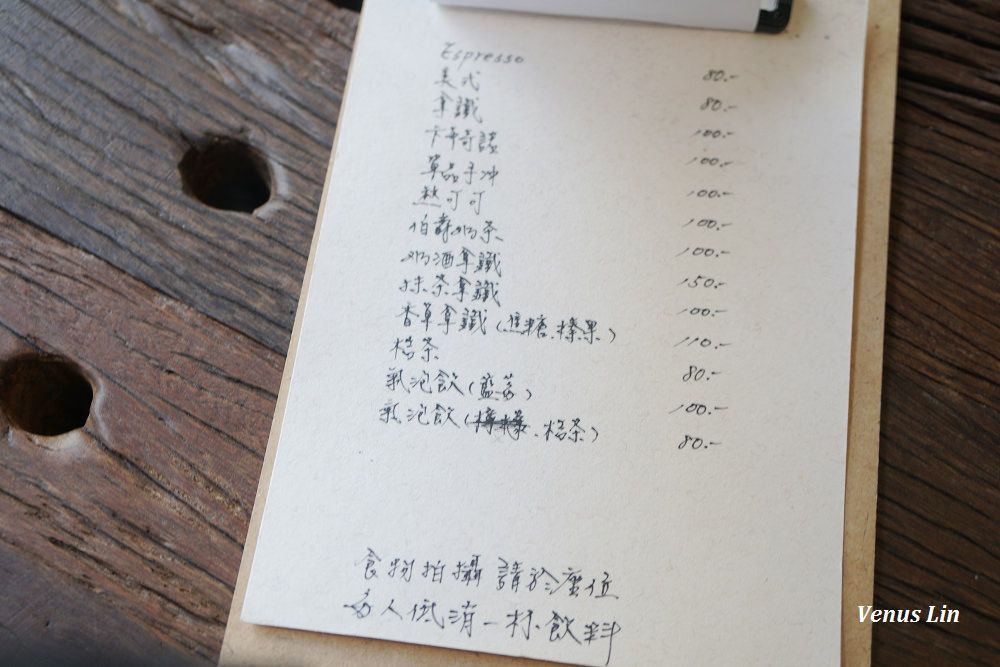 Espresso 80.-
美式 80.-
拿鐵 100.-
卡布奇諾 100.-
單品手冲 100.-
熱可可 100.-
伯爵奶茶 100.-
奶酒拿鐵 150.-
抹茶拿鐵 100.-
香草拿鐵(焦糖、榛果) 110.-
桔茶 80.-
氣泡飲(藍莓) 100.-
氣泡飲(檸檬、桔茶) 80.-
食物拍攝 請於座位
每人低消一杯飲料
Venus Lin